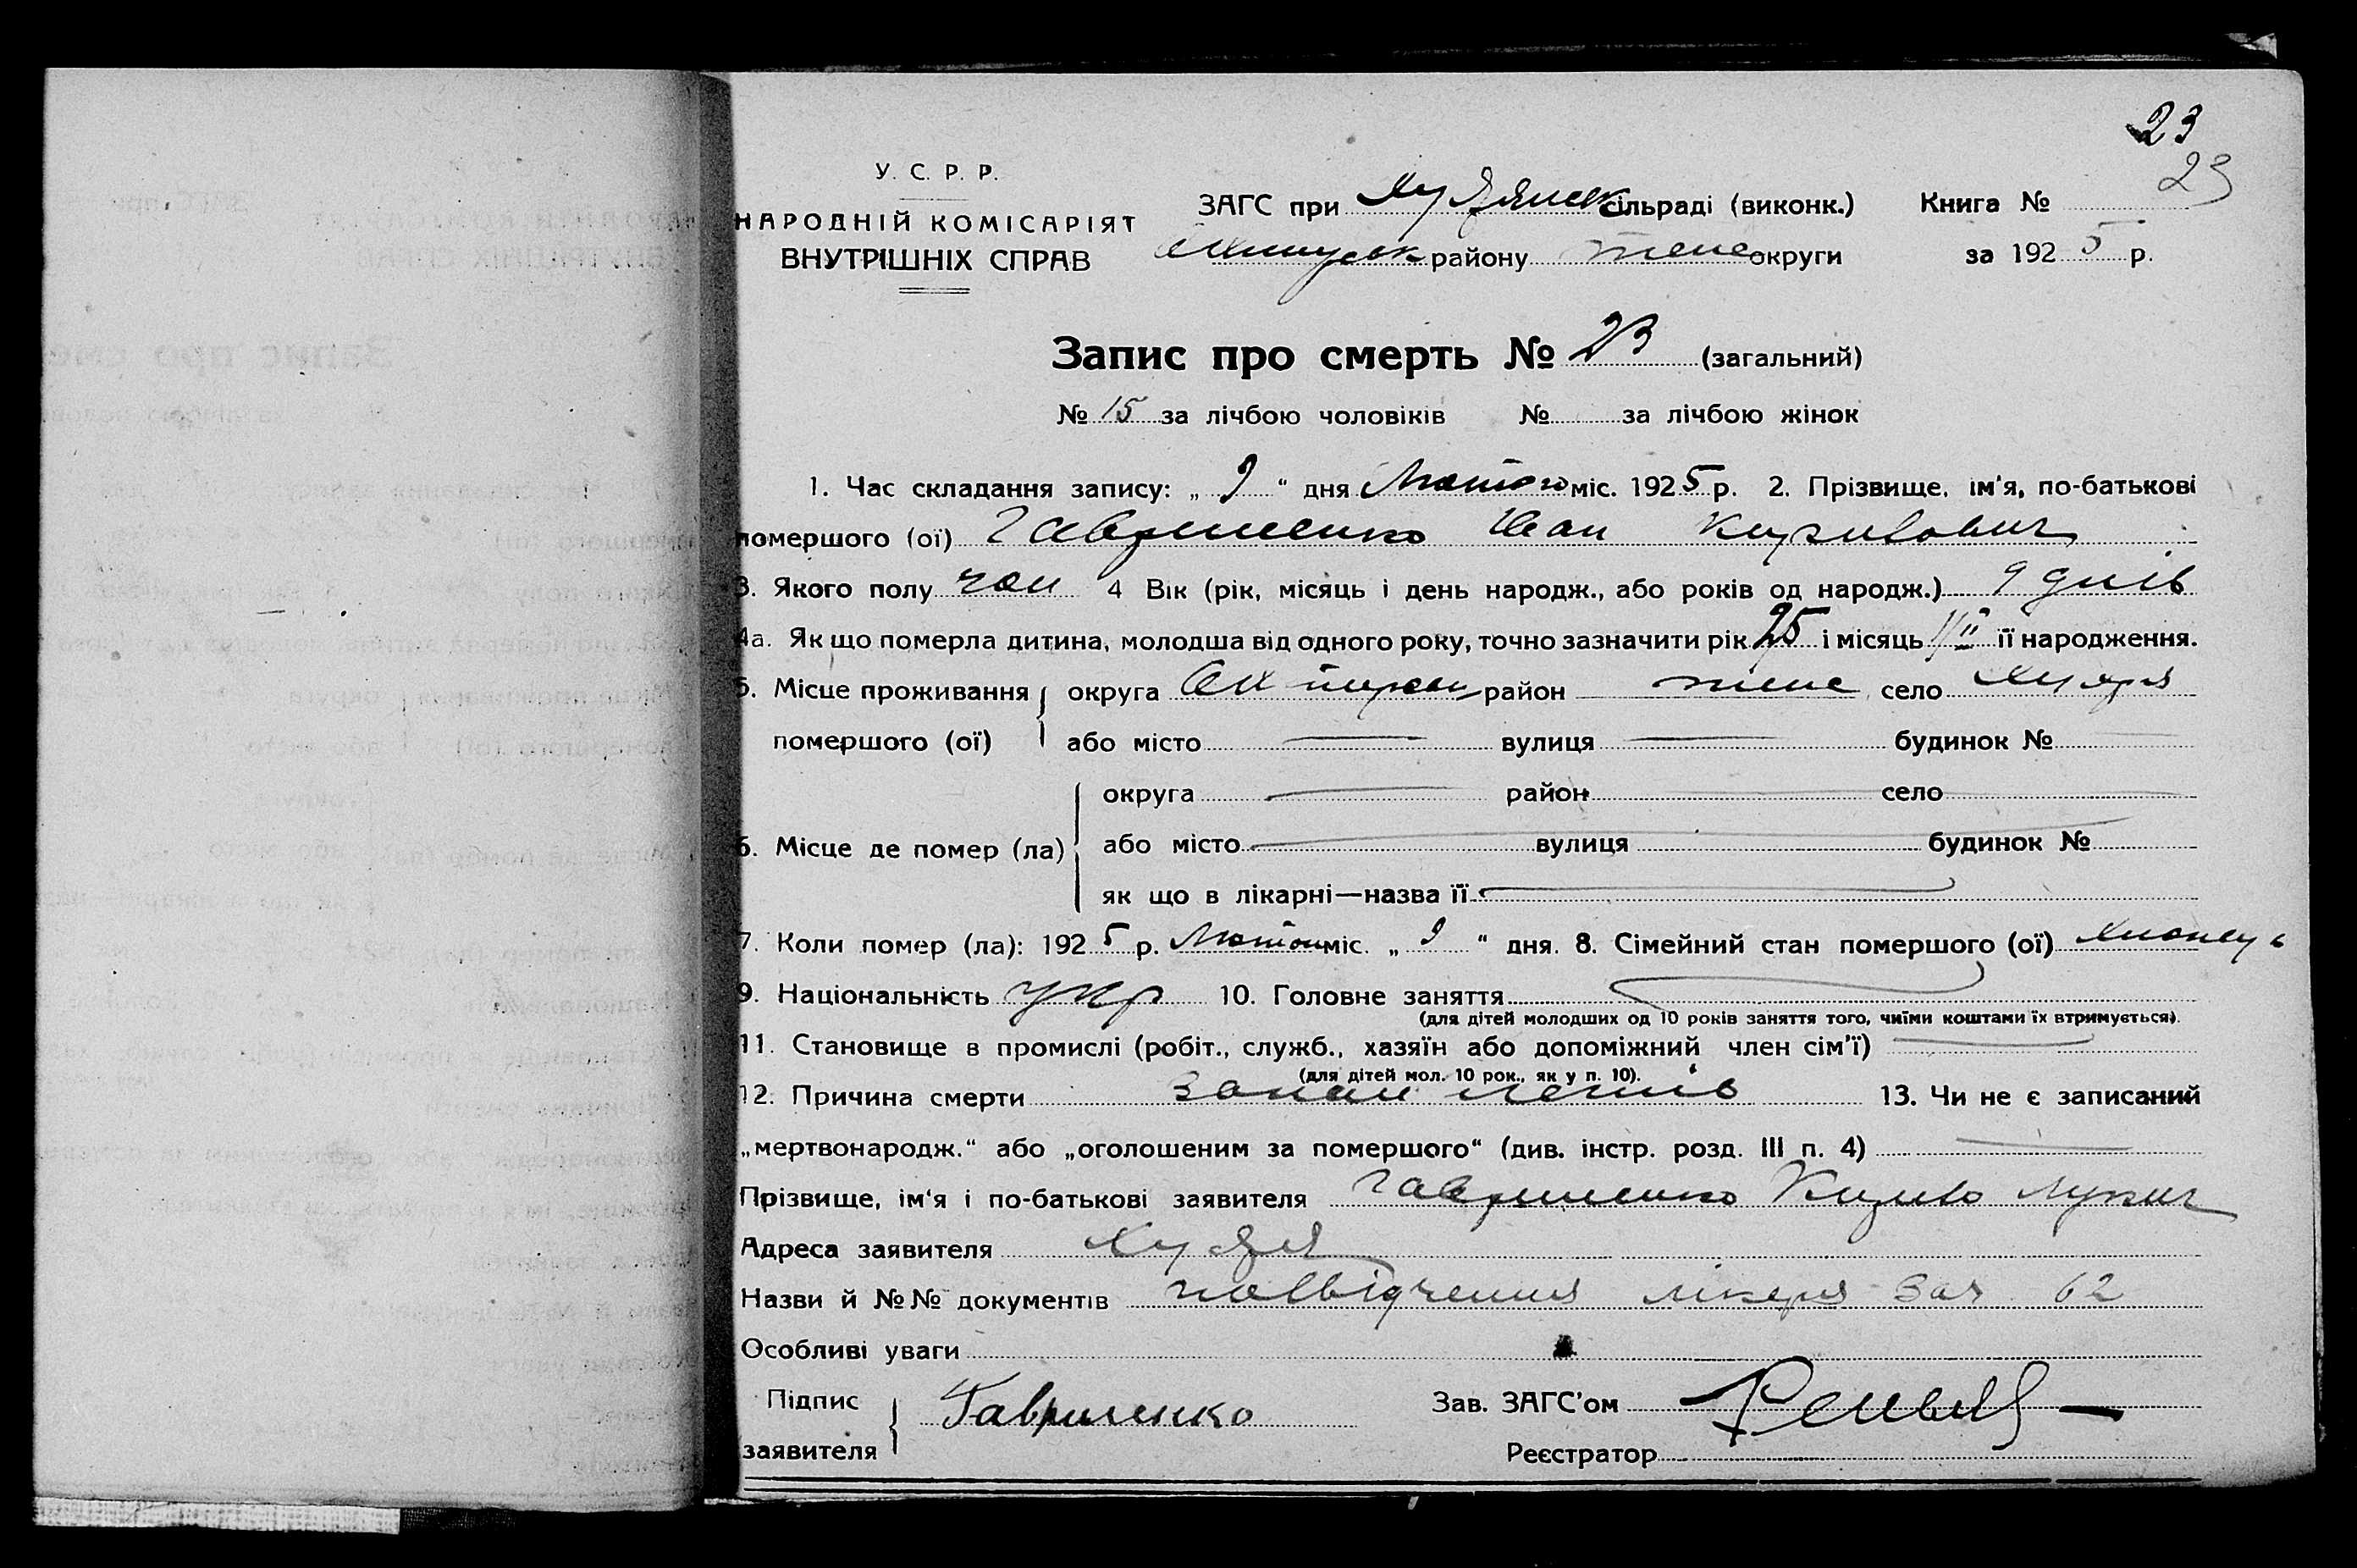 23
23
У. С. Р. Р.
НАРОДНІЙ КОМІСАРІЯТ
ВНУТРІШНІХ СПРАВ
ЗАГС при Худянск сільраді (виконк.) Книга №
району теже округи за 1925 р.
Запис про смерть № 23 (загальний)
№ 15 за лічбою чоловіків № за лічбою жінок
1. Час складання запису: „ 9 “ дня Лютого міс. 1925 р. 2. Прізвище, ім'я, по-батькові
помершого (ої) Гавриленко Іван Кирилович
3. Якого полу чол 4 Вік (рік, місяць і день народж., або років од народж.) 9 днів
4а. Як що померла дитина, молодша від одного року, точно зазначити рік 25 і місяць її народження.
5. Місце проживання округа район теже село Худяя
помершого (ої) або місто вулиця будинок №
округа район село
6. Місце де помер (ла) або місто вулиця будинок №
як що в лікарні—назва її
7. Коли помер (ла): 1925 р. Лютого міс. „ 9 “ дня. 8. Сімейний стан помершого (ої) хлопець
9. Національність укр 10. Головне заняття
(для дітей молодших од 10 років заняття того, чиїми коштами їх втримується).
11. Становище в промислі (робіт., служб., хазяїн або допоміжний член сім'ї)
(для дітей мол. 10 рок., як у п. 10).
12. Причина смерти запал легнів 13. Чи не є записаний
„мертвонародж.“ або „оголошеним за помершого“ (див. інстр. розд. III п. 4)
Прізвище, ім'я і по-батькові заявителя Гавриленко Кирило Лукич
Адреса заявителя Худяя
Назви й №№ документів посвідчення лікаря зач 62
Особливі уваги
Підпис
заявителя Гавриленко
Зав. ЗАГС'ом
Реєстратор